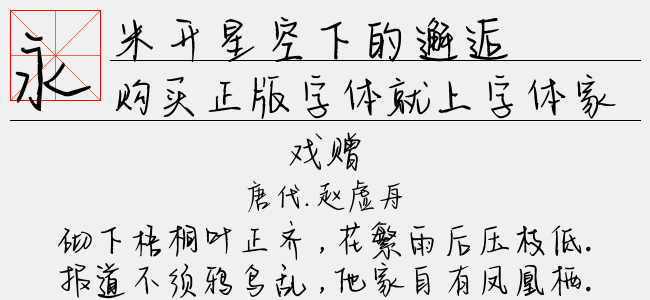 永
米开星空下的邂逅
购买正版字体就上字体家
戏赠
唐代.赵虚舟
砌下梧桐叶正齐,花繁雨后压枝低.
报道不须鸦鸟乱,他家自有凤凰栖.